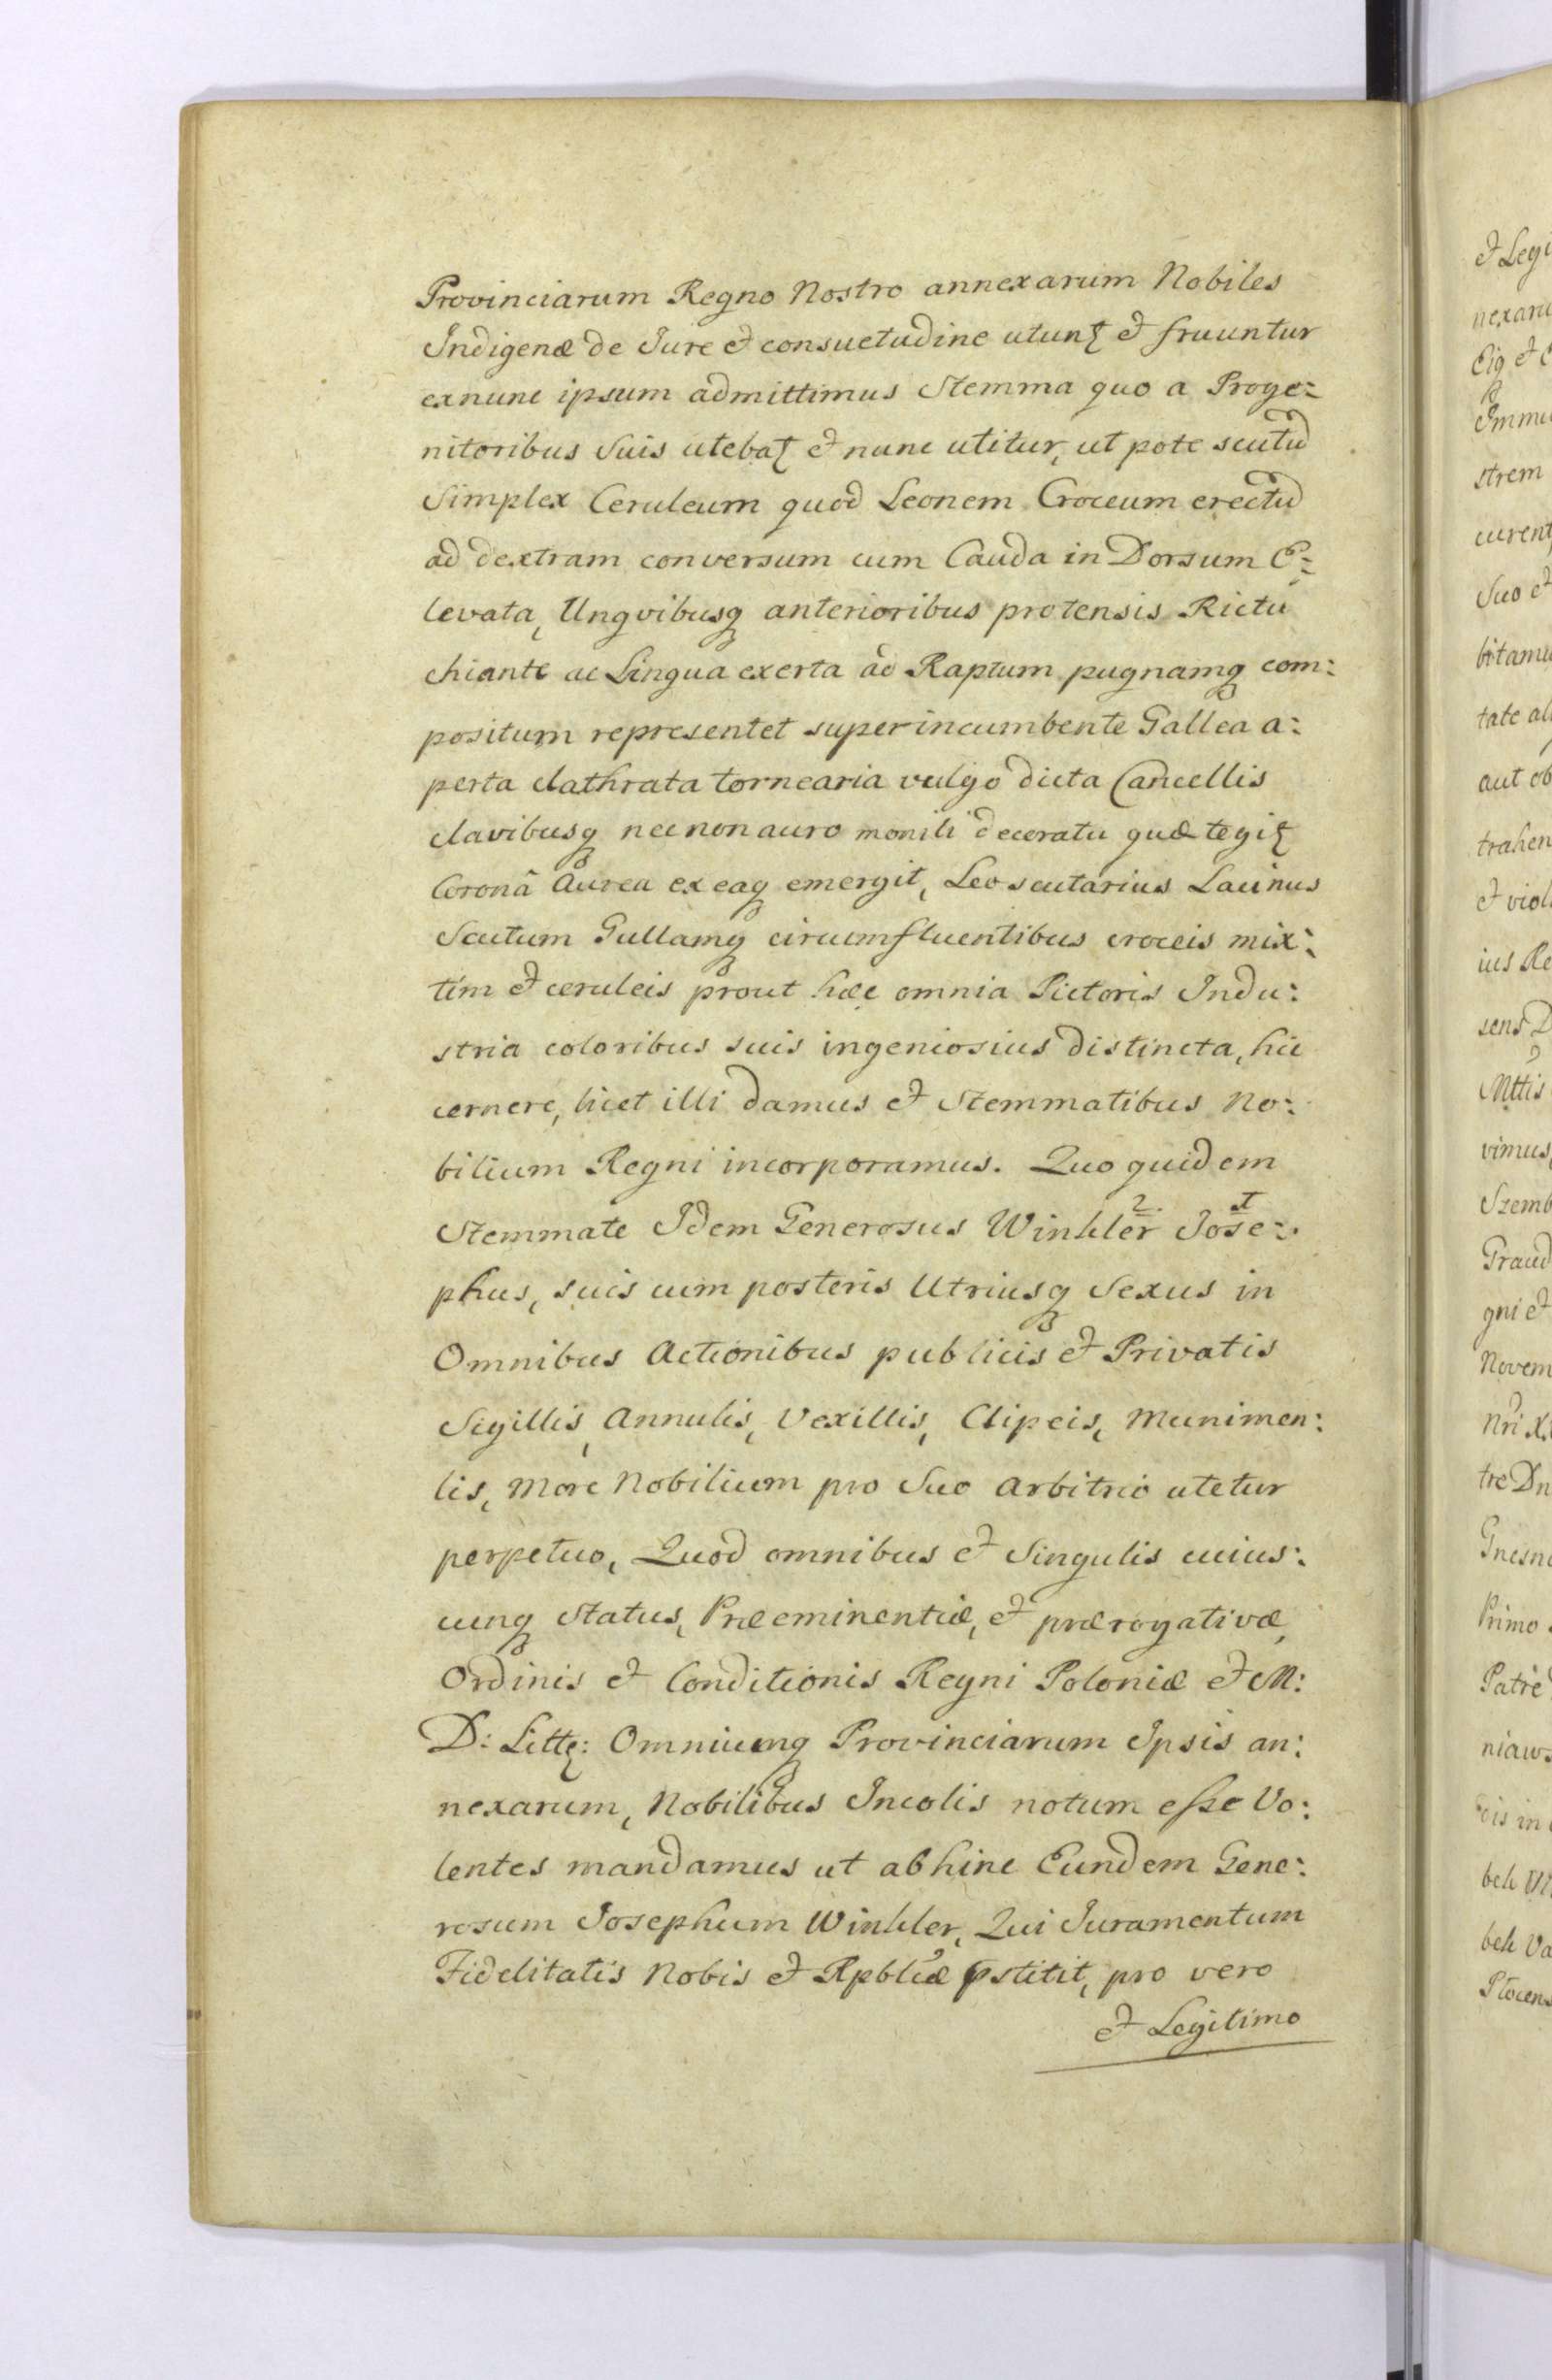 Provinciarum Regno Nostro annexarum Nobiles
Indigenæ de Jure et consuetudine utunʈ et fruuntur
exnunc ipsum admittimus Stemma quo a Proge:
nitoribus Suis utebaʈ et nunc utitur, ut pote scutū
Simplex Ceruleum quod Leonem Croceum erectū
ad dextram conversum cum Cauda in Dorsum E:
levata, Ungvibusq anterioribus protensis Rictu
chiante ac Lingua exerta ad Raptum pugnamq com:
positum representet superincumbente Gallea a:
perta clathrata tornearia vulgo dicta Cancellis
clavibusq necnon auro monili decoratu quæ tegiʈ
Coronâ Aurea ex eaq emergit, Leo scutarius Lacinus
Scutum Gullamq circumfluentibus croceis mix:
tim et ceruleis prout hæc omnia Pictoris Indu:
stria coloribus suis ingeniosius distincta, hic
cernere, licet illi damus et Stemmatibus No:
bilium Regni incorporamus. Quo quidem
Stemmate Idem Generosus Winkler 2. Jose: I
phus, suis cum posteris Utriusq Sexus in
Omnibus Actionibus publicis et Privatis
Sigillis, Annulis, Vexillis, Clipeis, Munimen:
lis, More Nobilium pro Suo arbitrio utetur
perpetuo, Quod omnibus et Singulis cuius:
cunq Status, Præeminentiæ, et prærogativæ,
Ordinis et Conditionis Regni Poloniæ et M:
D: Litt: Omniumq Provinciarum Ipsis an:
nexarum, Nobilibus Incolis notum esse Vo:
lentes mandamus ut abhinc Eundem Gene:
rosum Josephum Winkler, Qui Juramentum
Fidelitatis Nobis et Rpblicæ pstitit, pro vero
et Legitimo
et Legi
strem
Suo et
tate al
aut ob
trahen
et viol
ius Re
Mttis
vimus,
Szemb
gni et
Novem
Gnesn
Primo